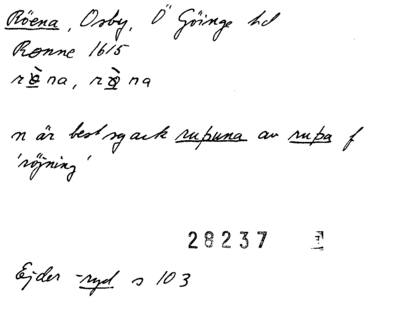 Röena, Osby, Ö Göinge hd
Rønne 1615
rø̀na, rø̀na
n är best sg ack rupuna av rupa f
'röjning'
28237
Ejder -ryd s 103